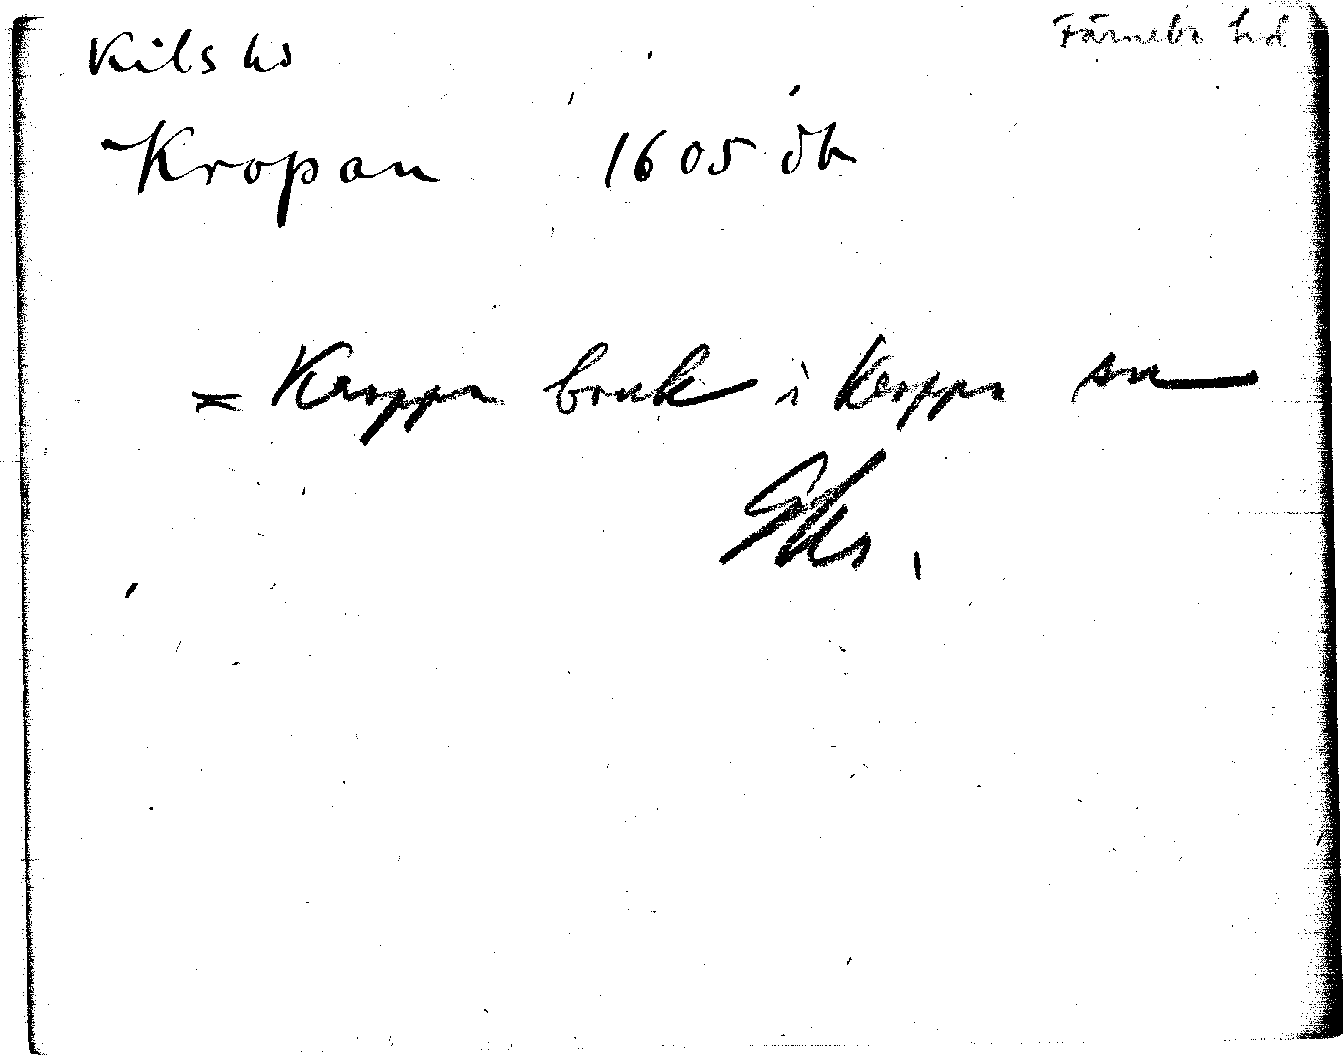 Kils hd
Färnebo hd
Kropan 1605 öb
= Kroppa bruk i Kroppa sn